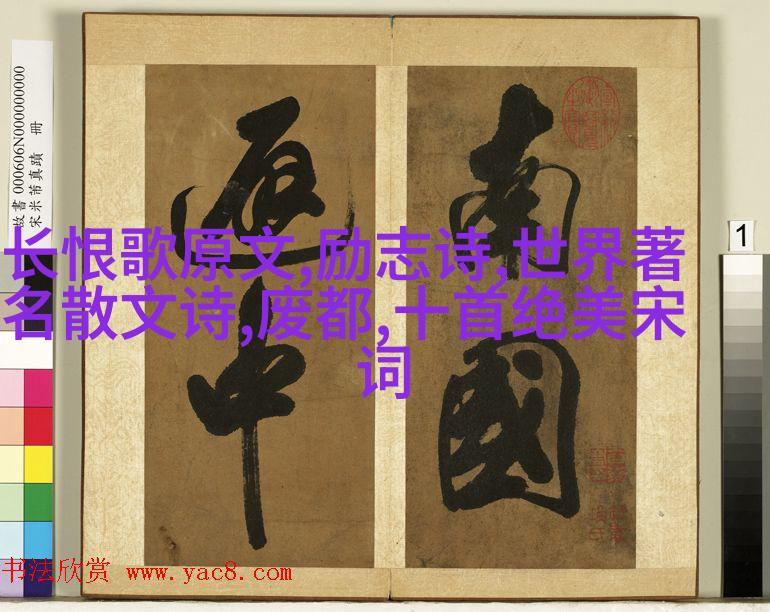 故書 000606N000000000
宋米芾真蹟 冊
南國
中
长恨歌原文,励志诗,世界著
名散文诗,废都,十首绝美宋
词
1
书法欣赏 www.yac8.com